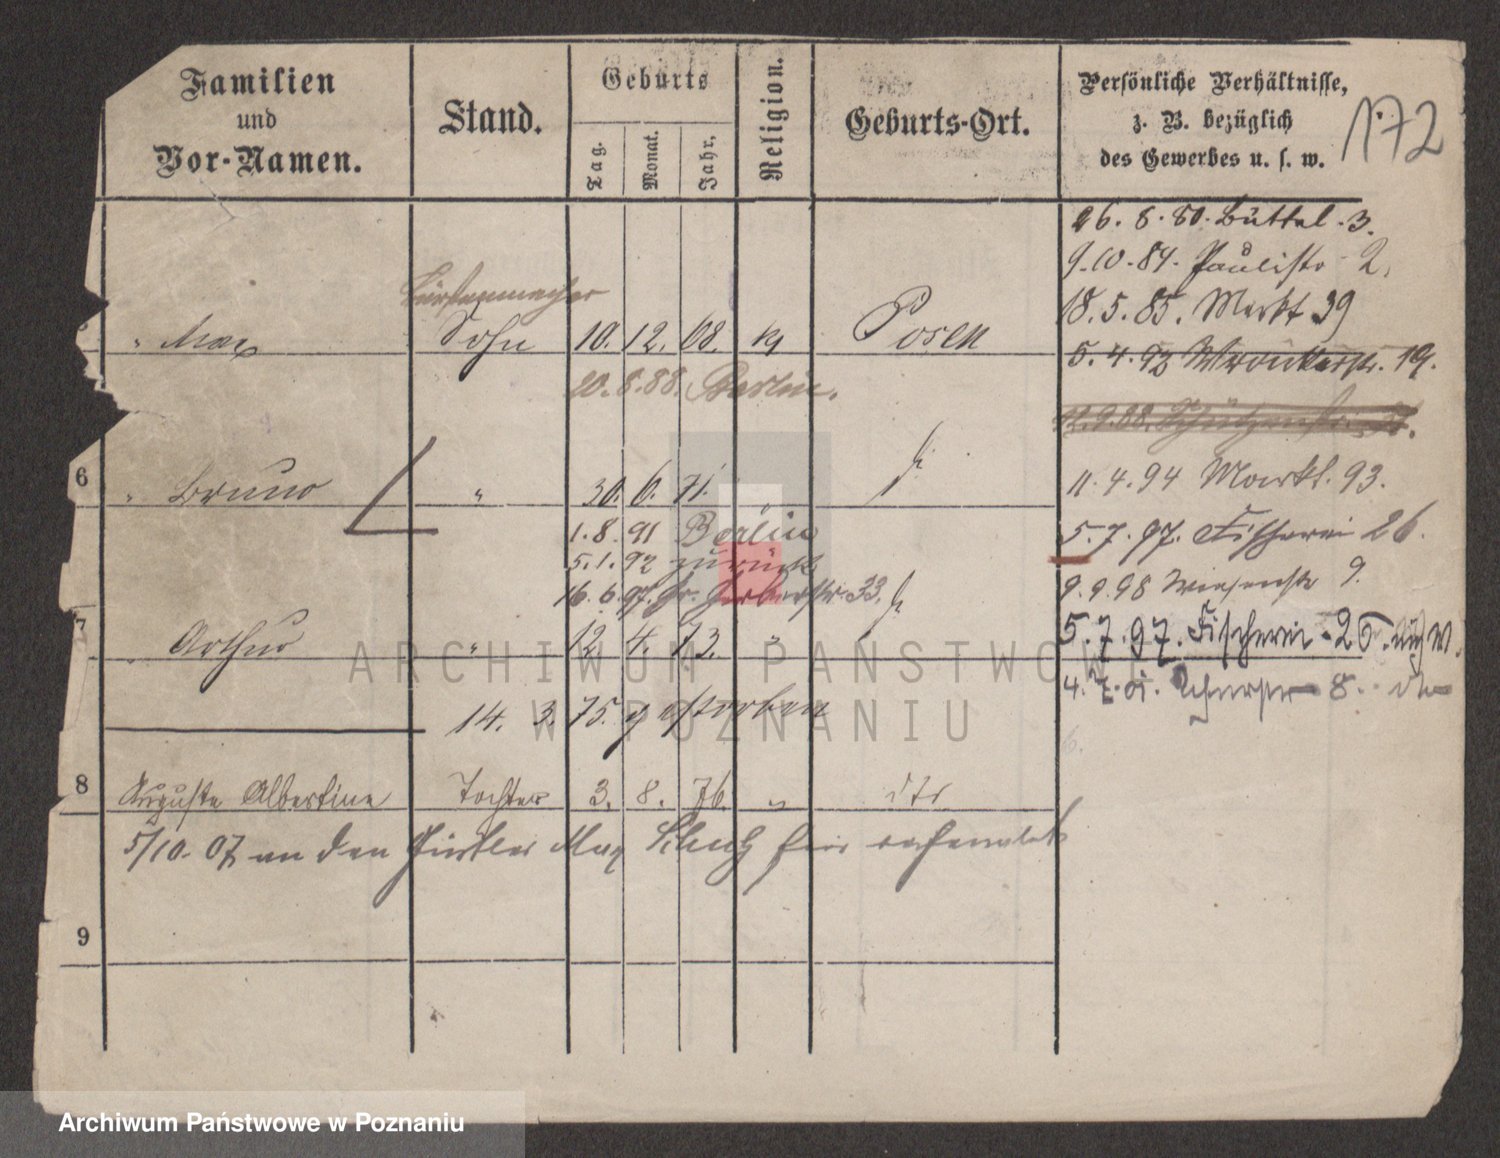 Familien
und
Vor-Namen.
Stand.
Geburts
Tag.
Monat.
Jahr.
Religion.
Geburts-Ort.
Persönliche Verhältnisse,
z. B. bezüglich
des Gewerbes u. s. w.
172
26. 8. 80. Büttel. 3.
9.10.84. Paulistr 2.
18. 5. 85. Markt 39
5. 4. 92 Wronkerstr. 19.
12.9.88. Schützenstr.
11. 4. 94 Markt. 93.
5. 7. 97. Fischerei 26.
9. 9. 98 Wiesenstr 9.
5. 7. 97. Fischerei 26.
4. 8.
Bürstenmacher
" Max Sohn 10. 12. 68. Posen
20. 8. 88. Berlin.
6 " Bruno " 30. 6. 71.
1. 8. 91 Berlin
5. 1. 92 zurück
16. 6. 97. Gr. Gerberstr. 33.
7 " Arthur " 12. 4. 73. "
14. 3. 75. gestorben
8 Auguste Albertine Tochter 3. 8. 76. "
5/10. 07 an den Max
9
ARCHIWUM PAŃSTWOWE
W POZNANIU
Archiwum Państwowe w Poznaniu